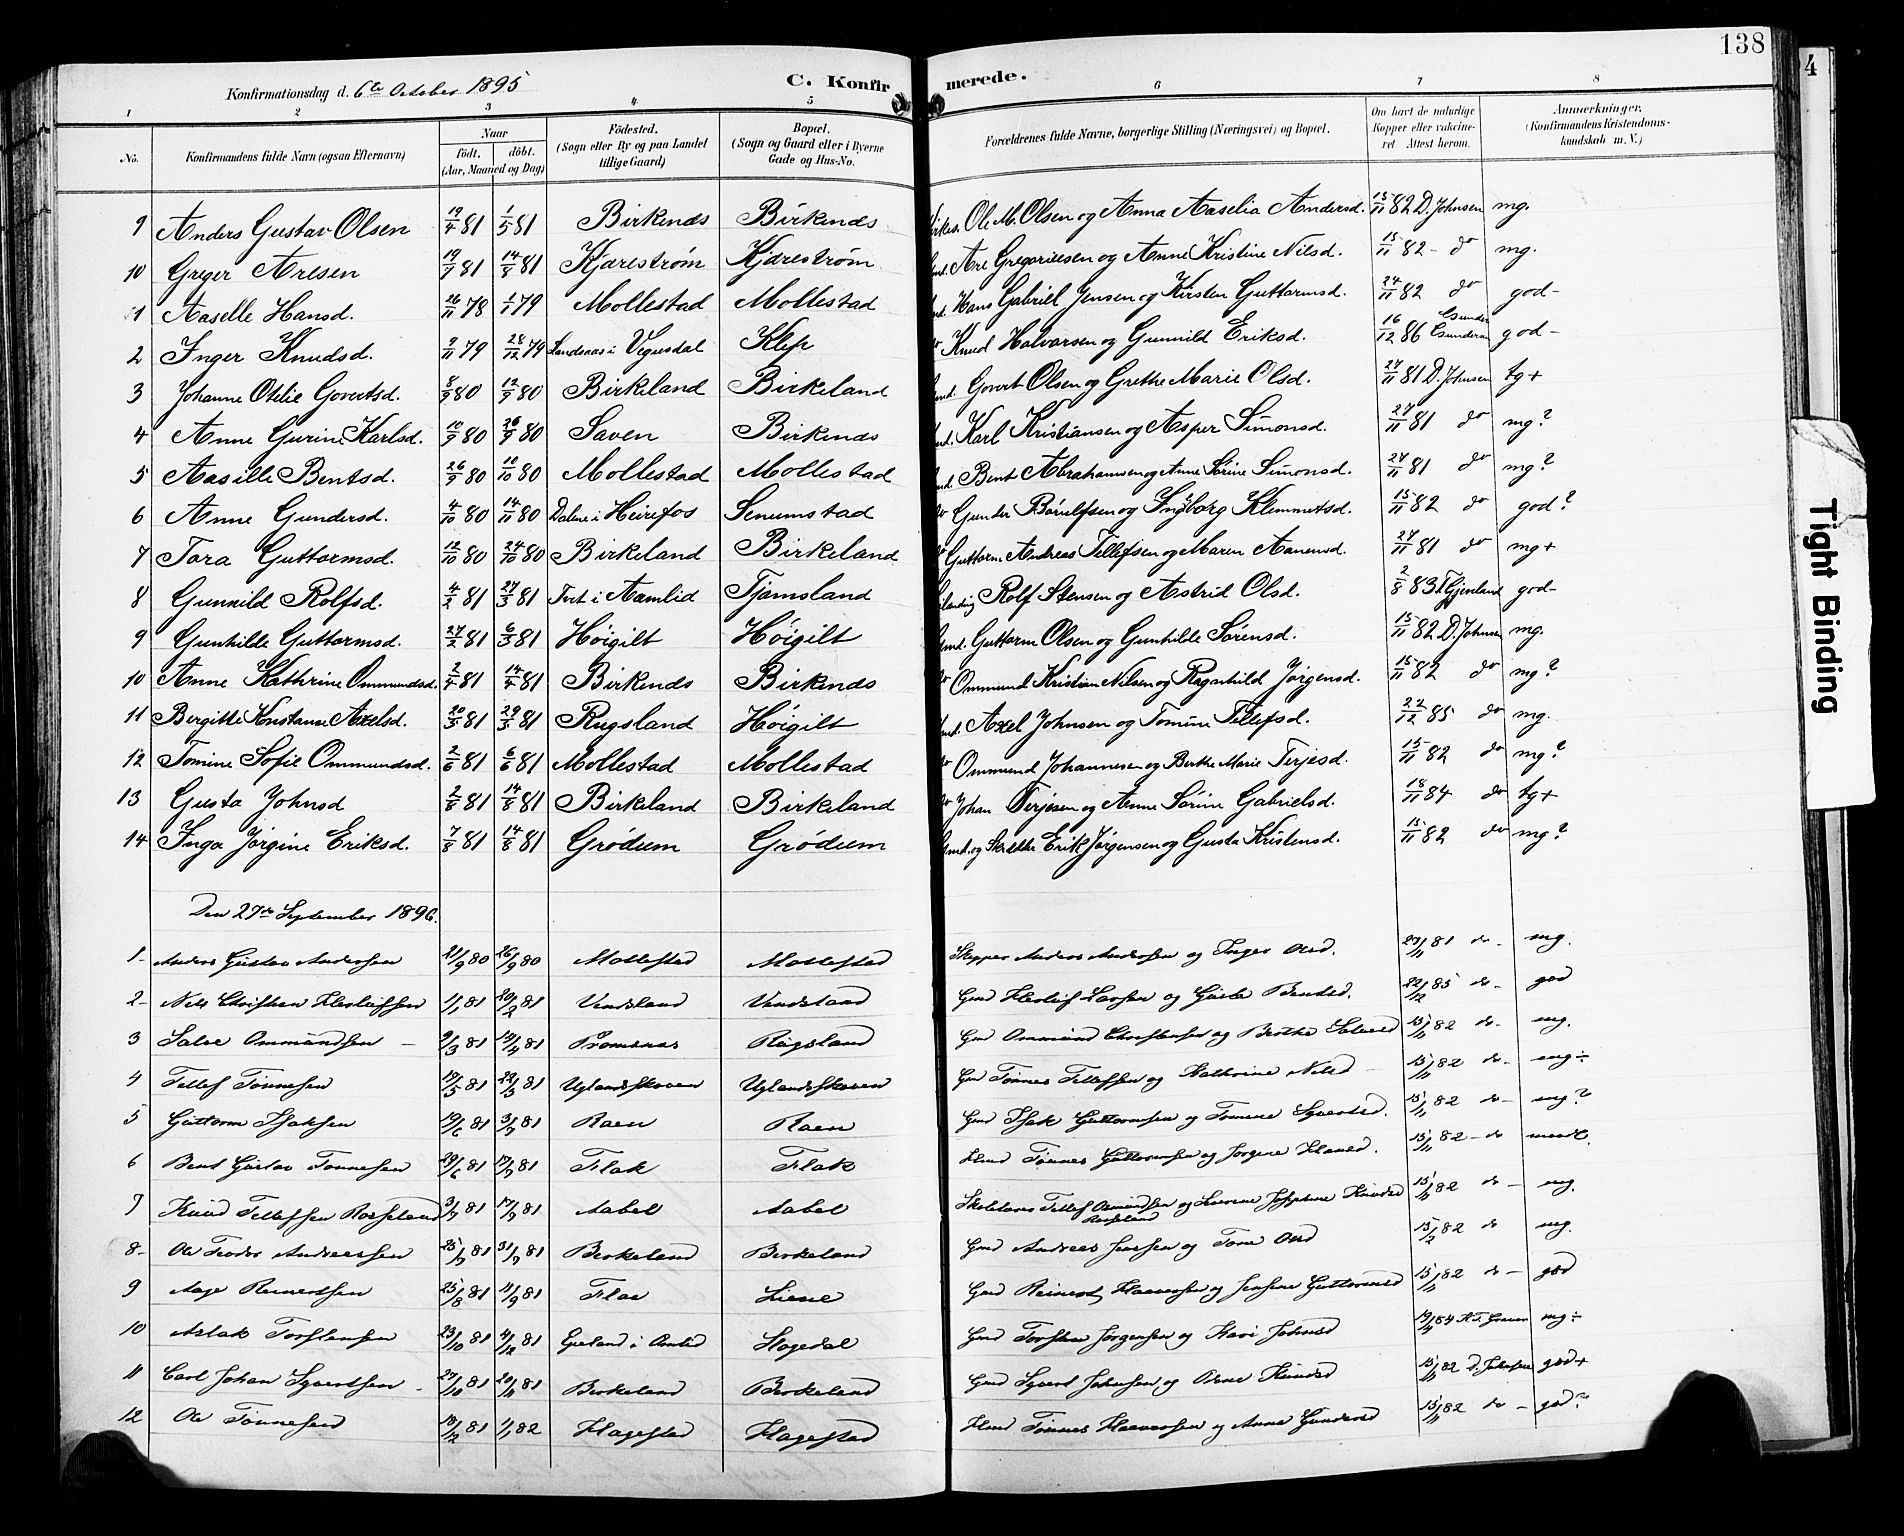 138
4
Tight Binding
Konfirmationsdag d. 6te October 1895 C. Konfirmerede.
1 2 3 4 5 6 7 8
No. Konfirmandens fulde Navn (ogsaa Efternavn) Naar födt. döbt. (Aar, Maaned og Dag) Födested. (Sogn eller By og paa Landet tillige Gaard) Bopæl. (Sogn og Gaard eller i Byerne Gade og Hus-No. Forældrenes fulde Navne, borgerlige Stilling (Næringsvei) og Bopæl. Om havt de naturlige Kopper eller vaccineret. Attest herom. Anmærkninger. (Konfirmandens Kristendomskundskab m. V.)
9 Anders Gustav Olsen 19/4 81 1/5 81 Birkenæs Birkenæs Ole M. Olsen og Anna Aaselia Andersd. 15/11 82 D. Johnsen mg.
10 Greger Aresen 19/7 81 14/8 81 Kjærestrøm Kjærestrøm Are Gregoriussen og Anne Kristine Nilsd. 15/11 82 - do mg.
1 Aaselle Hansd. 26/11 78 1/1 79 Mollestad Mollestad Hans Gabriel Jensen og Kirsten Guttormsd. 24/11 82 do god-
2 Inger Knudsd. 9/11 79 28/12 79 Landsaas i Vegusdal Klep Knud Halvorsen og Gunnild Eriksd. 16/12 86 god-
3 Johanne Otelie Govertsd. 8/9 80 12/9 80 Birkeland Birkeland Govert Olsen og Grethe Marie Olsd. 27/11 81 D. Johnsen tg+
4 Anne Gurine Karlsd. 10/9 80 26/9 80 Saven Birkenæs Karl Kristiansen og Asper Simonsd. 27/11 81 do mg?
5 Aasille Bentsd. 26/9 80 10/10 80 Mollestad Mollestad Bent Abrahamsen og Anne Sørine Simonsd. 27/11 81 do mg?
6 Anne Gundersd. 4/10 80 14/11 80 Dalene i Heirefos Senumstad Gunder Børulfsen og Ingborg Klemmetsd. 15/11 82 do god?
7 Tora Guttormsd. 12/10 80 24/10 80 Birkeland Birkeland Guttorm Andreas Tellefsen og Maren Aanensd. 27/11 81 do mg+
8 Gunnild Rolfsd. 4/2 81 27/3 81 Tvet i Aamlid Tjamsland Rolf Stensen og Astrid Olsd. 2/8 83 god-
9 Gunhilde Guttormsd. 27/2 81 6/3 81 Høigilt Høigilt Guttorm Olsen og Gunhilde Sørensd. 15/11 82 D. Johnsen mg.
10 Anne Kathrine Ommundsd. 2/4 81 14/4 81 Birkenæs Birkenæs Ommund Kristian Nilsen og Ragnhild Jørgensd. 15/11 82 do mg?
11 Bergitte Konstanse Axelsd. 20/3 81 29/3 81 Rugsland Høigilt Axel Johnsen og Tomine Tellefsd. 22/12 85 do mg.
12 Tomine Sofie Ommundsd. 2/6 81 6/6 81 Mollestad Mollestad Ommund Johannesen og Berthe Marie Terjesd. 15/11 82 do mg?
13 Gusta Johnsd 2/8 81 14/8 81 Birkeland Birkeland Johan Terjesen og Anne Sørine Gabrielsd. 18/11 84 do tg+
14 Inga Jørgine Eriksd. 7/8 81 14/8 81 Grødum Grødum Gmd. og Skrædder Erik Jørgensen og Gusta Kristensd. 15/11 82 do mg?
Den 27de September 1896.
1- Anders Gustav Andersen 21/9 80 26/9 80 Mollestad Mollestad Skipper Anders Andersen og Inger Olsd. 27/11 81 do- mg.
2- Nils Christian Herlufsen 1/1 81 20/2 81 Vendsland Vendsland Gmd Herluf Larsen og Gusta Bendsd. 22/12 85 do- god
3 Salve Ommundsen - 2/3 81 Rugsland Gmd Ommund Christensen og Berthe Salvesd 15/11 82 do- mg.
4 Tellef Tønnesen 19/5 81 22/5 81 Uglandsskoven Uglandsskoven Gmd Tønnes Tellefsen og Kathrine Nilsd - 15/11 82 do- mg÷
5 Guttorm Isaksen 19/6 81 3/7 81 Raen Raen Gmd Isak Guttormsen og Tomine Syvertsd. 15/11 82 do- mg?
6 Bent Gustav Tønnesen 29/6 81 17/7 81 Flak Flak Tønnes Guttormsen og Jørgine Hansd. 15/11 82 - do maadl.
7 Knud Tellefsen Rosseland 3/7 81 17/7 81 Aabel Aabel Skolelærer Tellef Osmundsen Rosseland og Josephine Knudsd 15/11 82 do- mg.
8- Ole Teodor Andreassen 25/7 81 31/7 81 Birkeland Birkeland Gmd Andreas Jensen og Tone Olsd 15/2 82 do mg.
9 Aage Reinertsen 25/8 81 11/9 81 Flaa Liene Gmd Reinert Haaversen og Jensine Guttormsd 15/11 82 do- god
10 Aslak Torstensen 23/10 81 4/12 81 i Omlid Stagedal Gmd Torsten Jørgensen og Kari Johnsd 19/4 84 mg÷
11 Carl Johan Syvertsen - 27/10 81 20/11 81 Birkeland Birkeland Gmd Syvert Johnsen og Knudsd 15/11 82 D. Johnsen god+
12 Ole Tønnesen 18/12 81 1/1 82 Hagestad Hagestad Tønnes Haaversen og Anne Gundersd 15/11 82 do- god?